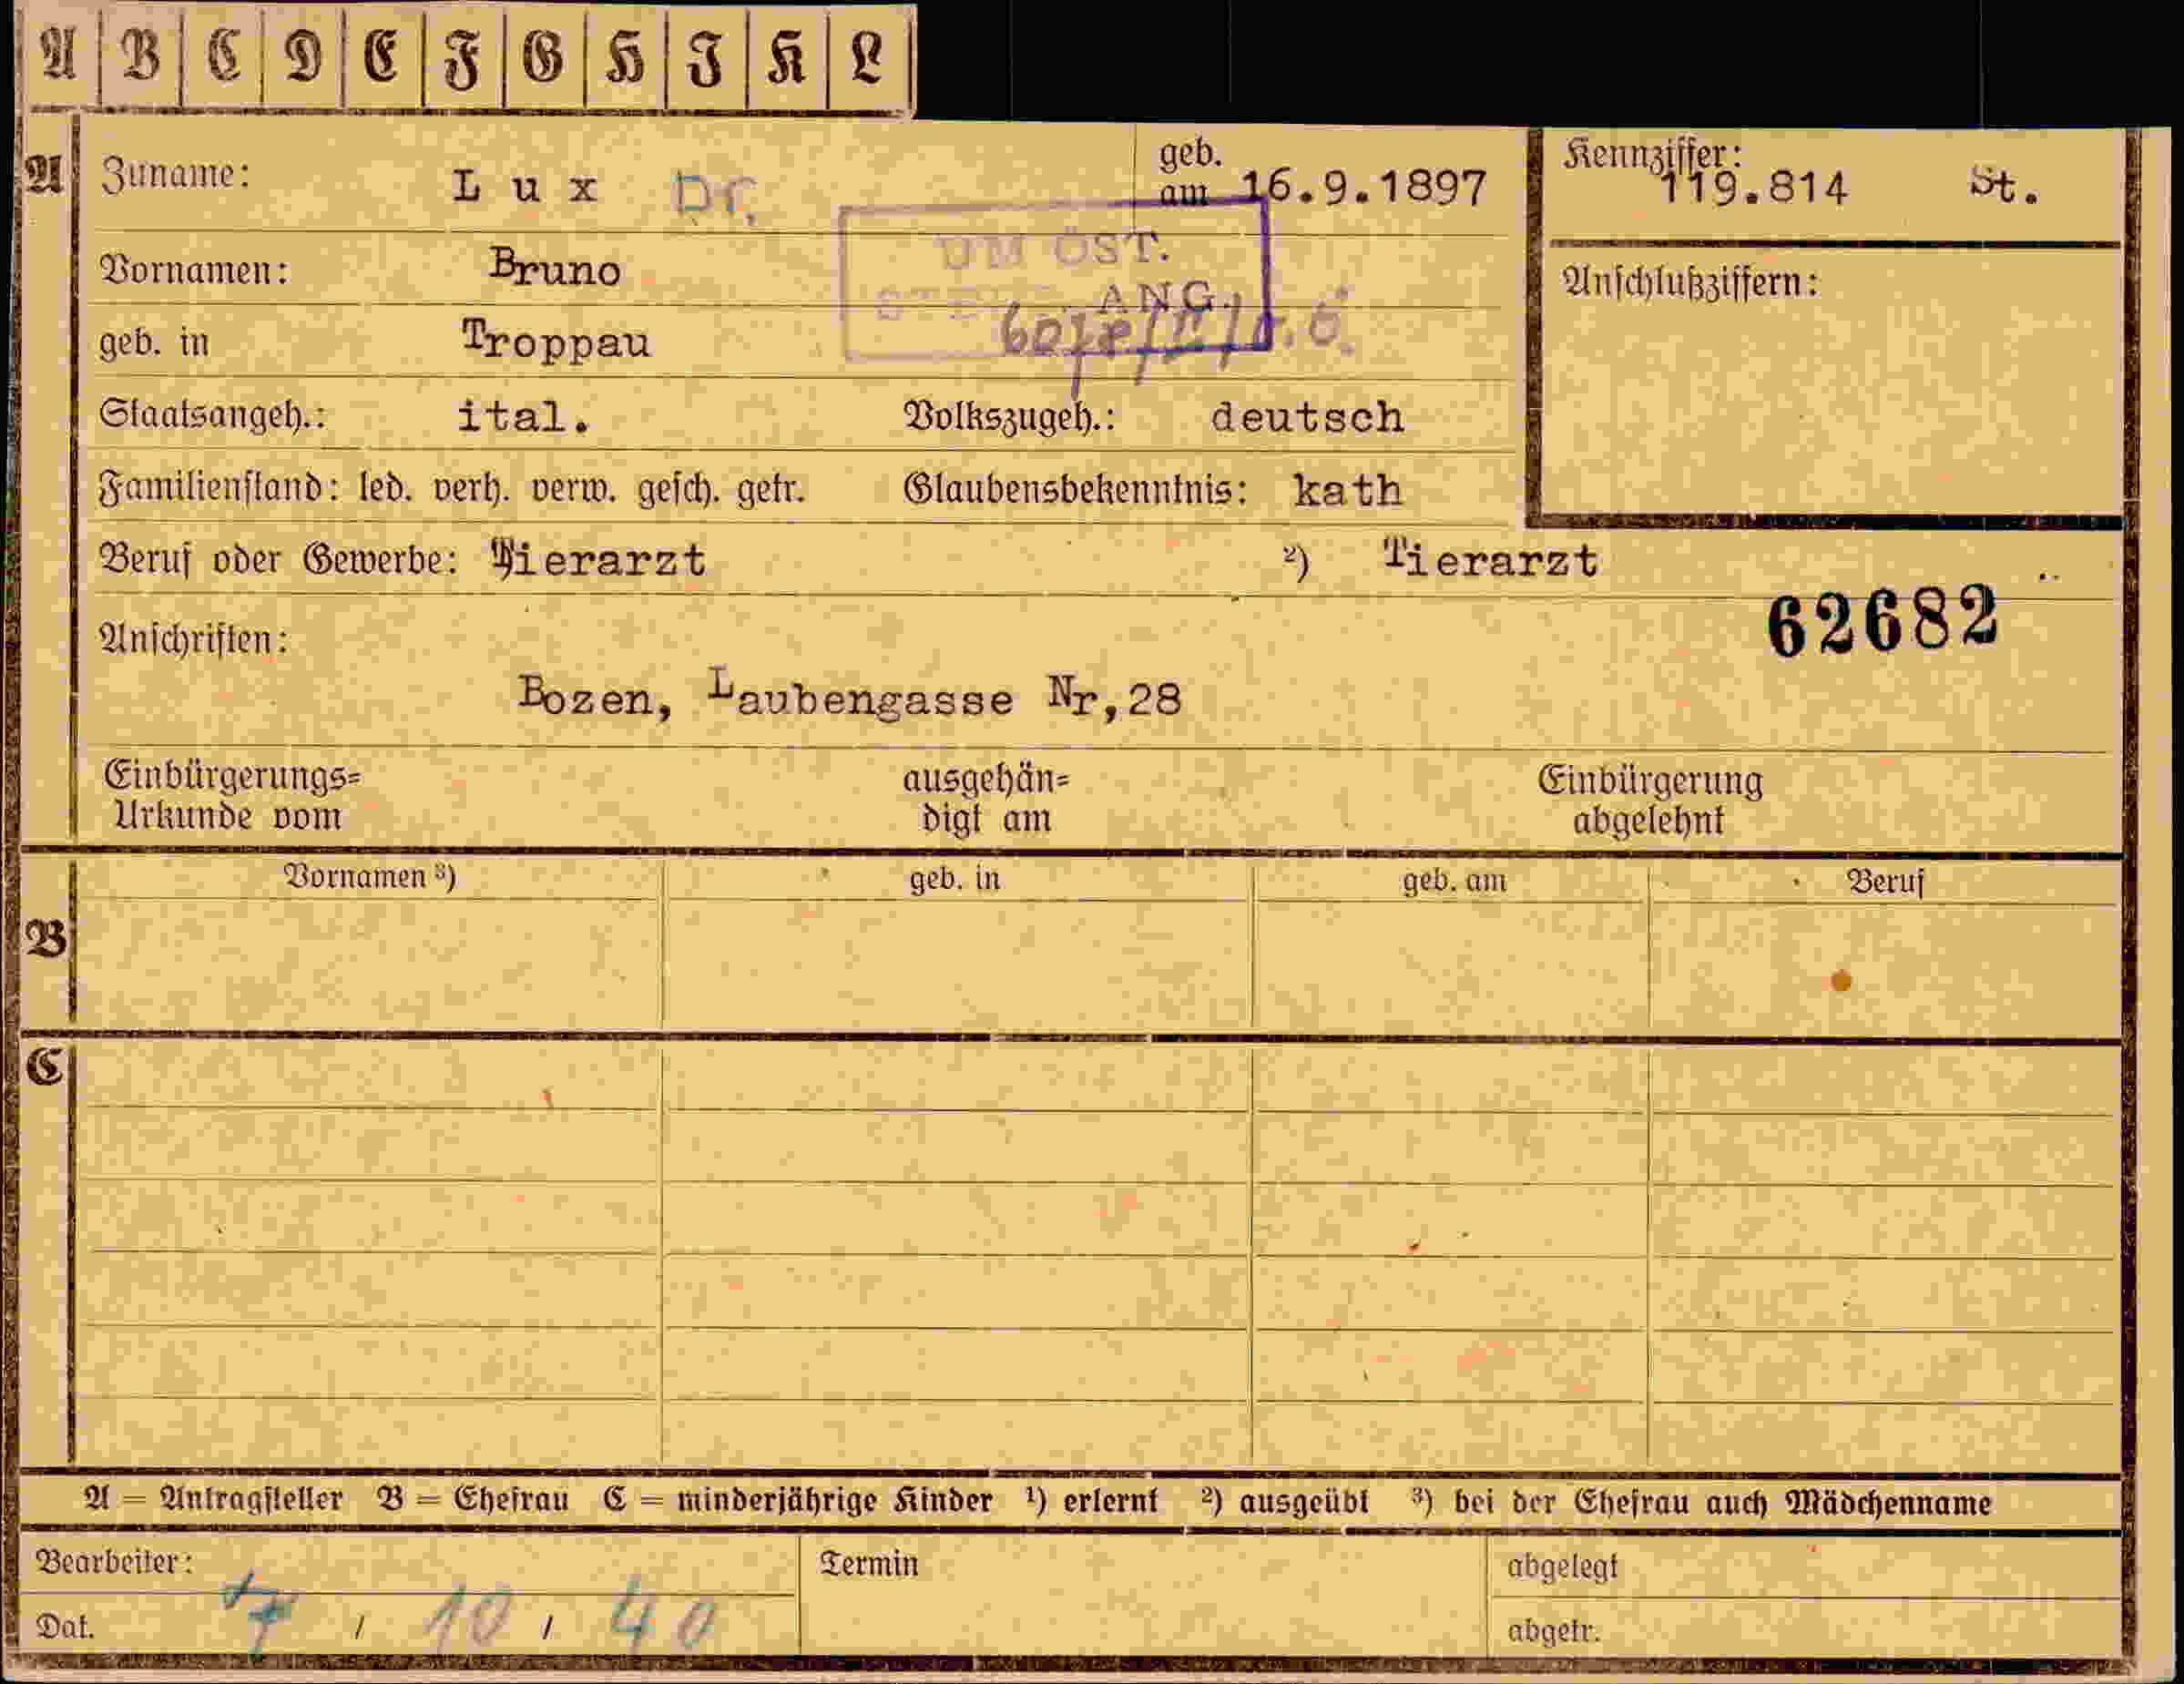 A B C D E F G H I K L
A Zuname: Lux Dr. geb. am 16.9.1897 Kennziffer: 119.814 St.
Vornamen: Bruno Anschlußziffern:
ÖST.
ANG.
geb. in Troppau
Staatsangeh.: ital. Volkszugeh.: deutsch
Familienstand: led. verh. verw. gesch. getr. Glaubensbekenntnis: kath
Beruf oder Gewerbe: Tierarzt ²) Tierarzt
62682
Anschriften:
Bozen, Laubengasse Nr,28
Einbürgerungs= ausgehän= Einbürgerung
Urkunde vom digt am abgelehnt
Vornamen ³) geb. in geb. am Beruf
B
C
A = Antragsteller B = Ehefrau C = minderjährige Kinder ¹) erlernt ²) ausgeübt ³) bei der Ehefrau auch Mädchenname
Bearbeiter: Termin abgelegt
Dat. 7 / 10 / 40 abgetr.